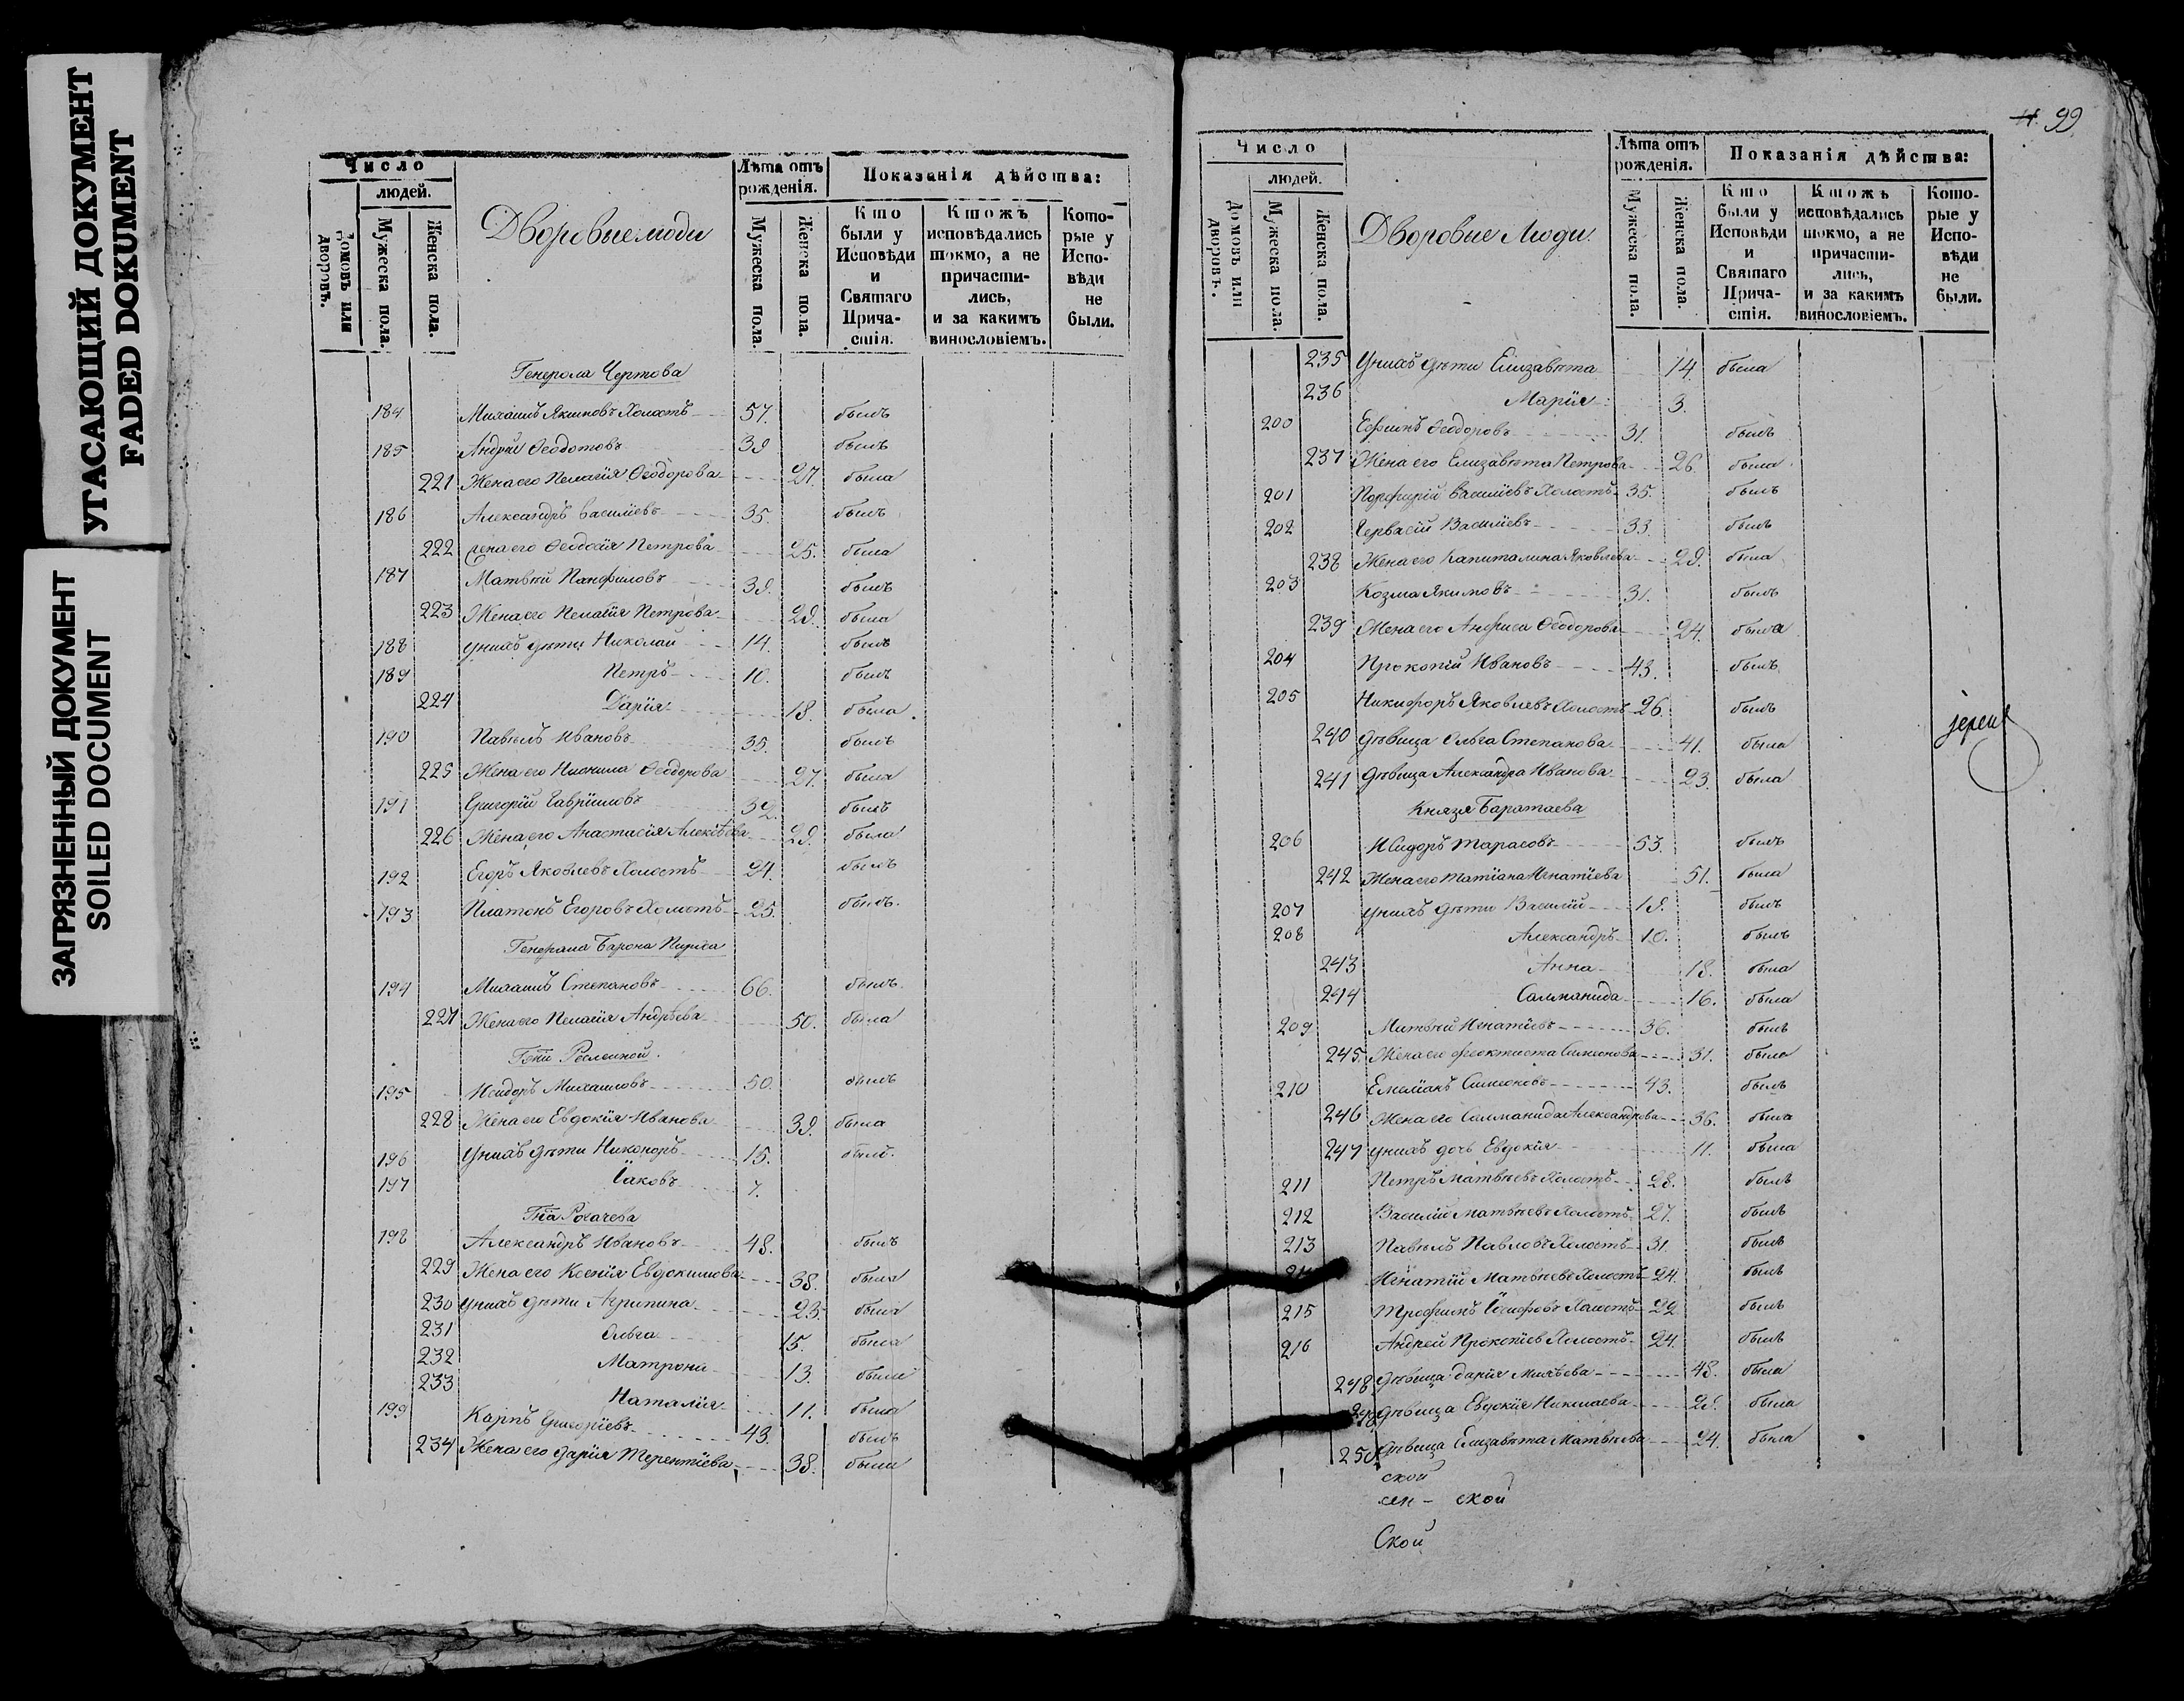 УГАСАЮЩИЙ ДОКУМЕНТ
FADED DOKUMENT
ЗАГРЯЗНЕННЫЙ ДОКУМЕНТ
SOILED DOCUMENT
Число
людей.
Домовъ или дворовъ.
Мужеска пола.
Женска пола.
Дворовые люди
Лѣта отъ рожденія.
Мужеска пола.
Женска пола.
Показанія дѣйства:
Кто были у Исповѣди и Святаго Причастія.
Ктожъ исповѣдались токмо, а не причастились, и за какимъ винословіемъ.
Которые у Исповѣди не были.
Генерала Черткова
184 Михаилъ Якимовъ Холостъ 57. былъ
185 Андрей Ѳеодотовъ 39 былъ
221 Жена его Пелагія Ѳеодорова 27. была
186 Александръ Василіевъ 35. былъ
222 Жена его Ѳеодосія Петрова 25. была
187 Матвѣй Панфиловъ 39. былъ
223 Жена его Пелагія Петрова 29. была
188 Унихъ дѣти Николай 14. былъ
189 Петръ 10. былъ
224 Дарія 18. была
190 Павелъ Ивановъ 35. былъ
225 Жена его Ѳеодорова 27. была
191 Григорій Гавріиловъ 32. былъ
226 Жена его Анастасія Алексѣева 29. была
192 Егоръ Яковлевъ Холостъ 24. былъ
193 Платонъ Егоровъ Холостъ 25. былъ.
Генерала Барона
194 Михаилъ Степановъ 66. былъ.
227 Жена его Пелагія Андрѣева 50. была
195 Исидоръ Михаиловъ 50. былъ
228 Жена его Евдокія Иванова 39. была
196 Унихъ дѣти Никоноръ 15. былъ.
197 Іаковъ 7.
198 Александръ Ивановъ 48. былъ
229 Жена его Ксенія Евдокимова 38. была
230 Унихъ дѣти Агрипина 23. была
231 Ольга 15. была
232 Матрона 13. была
233 Наталія 11. была
199 Карпъ Григоріевъ 43. былъ
234 Жена его Дарія Терентіева 38. была
99
Число
людей.
Домовъ или дворовъ.
Мужеска пола.
Женска пола.
Дворовые Люди.
Лѣта отъ рожденія.
Мужеска пола.
Женска пола.
Показанія дѣйства:
Кто были у Исповѣди и Святаго Причастія.
Ктожъ исповѣдались токмо, а не причастились, и за какимъ винословіемъ.
Которые у Исповѣди не были.
235 Унихъ дѣти Елизавета 14. была
236 Марія 3.
200 Ефимъ Ѳеодоровъ 31. былъ
237 Жена его Елизавета Петрова 26. была
201 Порфирій Василіевъ Холостъ 35. былъ
202 Гервасій Василіевъ 33. былъ
238 Жена его Капиталина Яковлева 29. была
203 Козма Якимовъ 31. былъ
239 Жена его Анфиса Ѳеодорова 24. была
204 Прокопій Ивановъ 43. былъ
205 Никифоръ Яковлевъ Холостъ 26. былъ
240 Дѣвица Ольга Степанова 41. была
241 Дѣвица Александра Иванова 23. была
іерей
Князя Баратаева
206 Исидоръ Тарасовъ 53. былъ
242 Жена его Татіана Игнатіева 51. была
207 Унихъ дѣти Василій 19. былъ
208 Александръ 10. былъ
243 Анна 18. была
244 Саломанида 16. была
209 Матвѣй Игнатіевъ 36. былъ
245. Жена его Феоктиста Симеонова 31. была
210 Емеліанъ Симеоновъ 43. былъ
246 Жена его Саломанида Александрова 36. была
247 Унихъ дочь Евдокія 11. была
211 Петръ Матвѣевъ Холостъ 28. былъ
212 Василій Матвѣевъ Холостъ 27. былъ
213 Павелъ Павловъ Холостъ 31. былъ
Игнатій Матвѣевъ Холостъ 24. былъ
215 Трофимъ Іосифовъ Холостъ 22 былъ
216 Андрей Прокопіевъ Холостъ 24. былъ
248 Дѣвица Дарія 48. была
Дѣвица Евдокія Николаева 29. была
250 Дѣвица Елизавета Матвѣева 24. была
ской
сен - ской
Ской